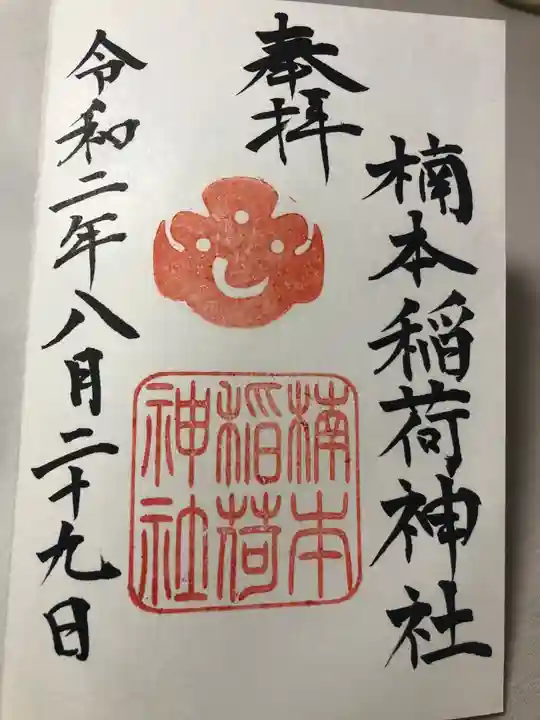 楠本稲荷神社
奉拝
楠本
稲荷
神社
令和二年八月二十九日